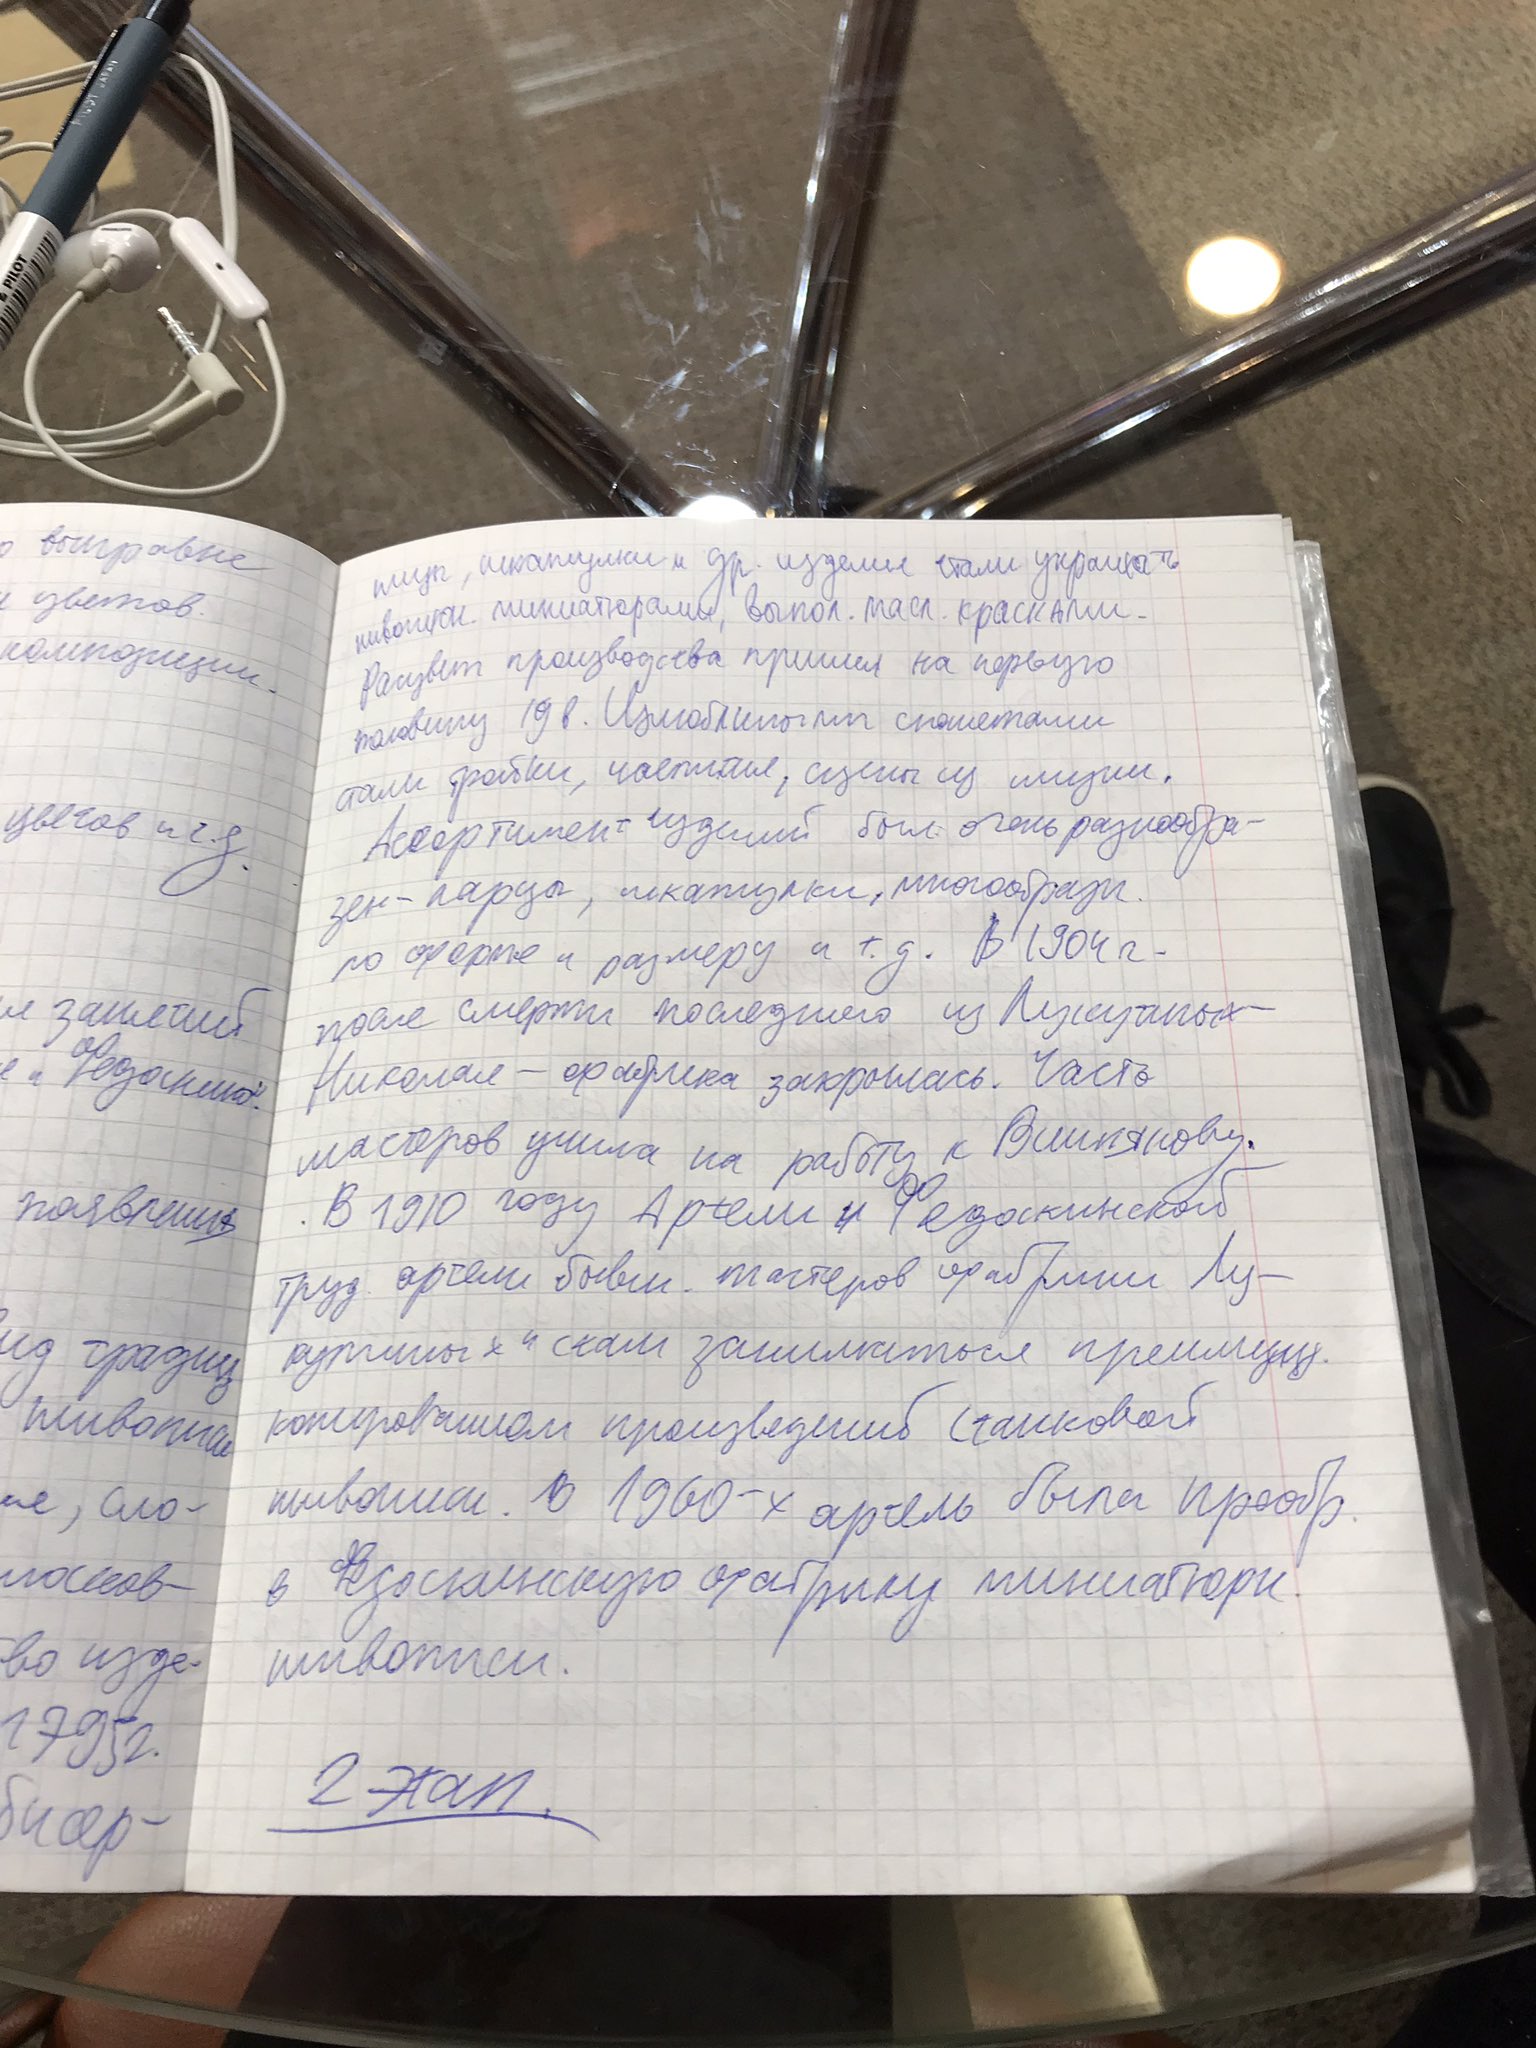 PILOT JAPAN
& PILOT
о выигравне
и цветов.
композиции.
цветов и т.д.
я занятий
е и Федоскиной.
появления
вид традиц
живописи
ие, сло-
во изде-
1795г.
бисер-
тиун, шкатулки и др. изделия стали украшать
живописн. миниатюрами, выпол. масл. красками.
Расцвет производства пришел на первую
половину 19 в. Излюбленными сюжетами
стали тройки, чаепития, сцены из жизни.
Ассортимент изделий был очень разнообра-
зен - ларцы, шкатулки, многообразн.
по форме и размеру и т.д. В 1904 г.
после смерти последнего из Лукутиных -
Николая - фабрика закрылась. Часть
мастеров ушла на работу к Вишнякову.
В 1910 году Артели и Федоскинской
труд. артели бывш. мастеров фабрики Лу-
кутиных" стали заниматься преимущ.
копированием произведений станковой
живописи. В 1960-х артель была преобр.
в Федоскинскую фабрику миниатюрн.
живописи.
2 этап.